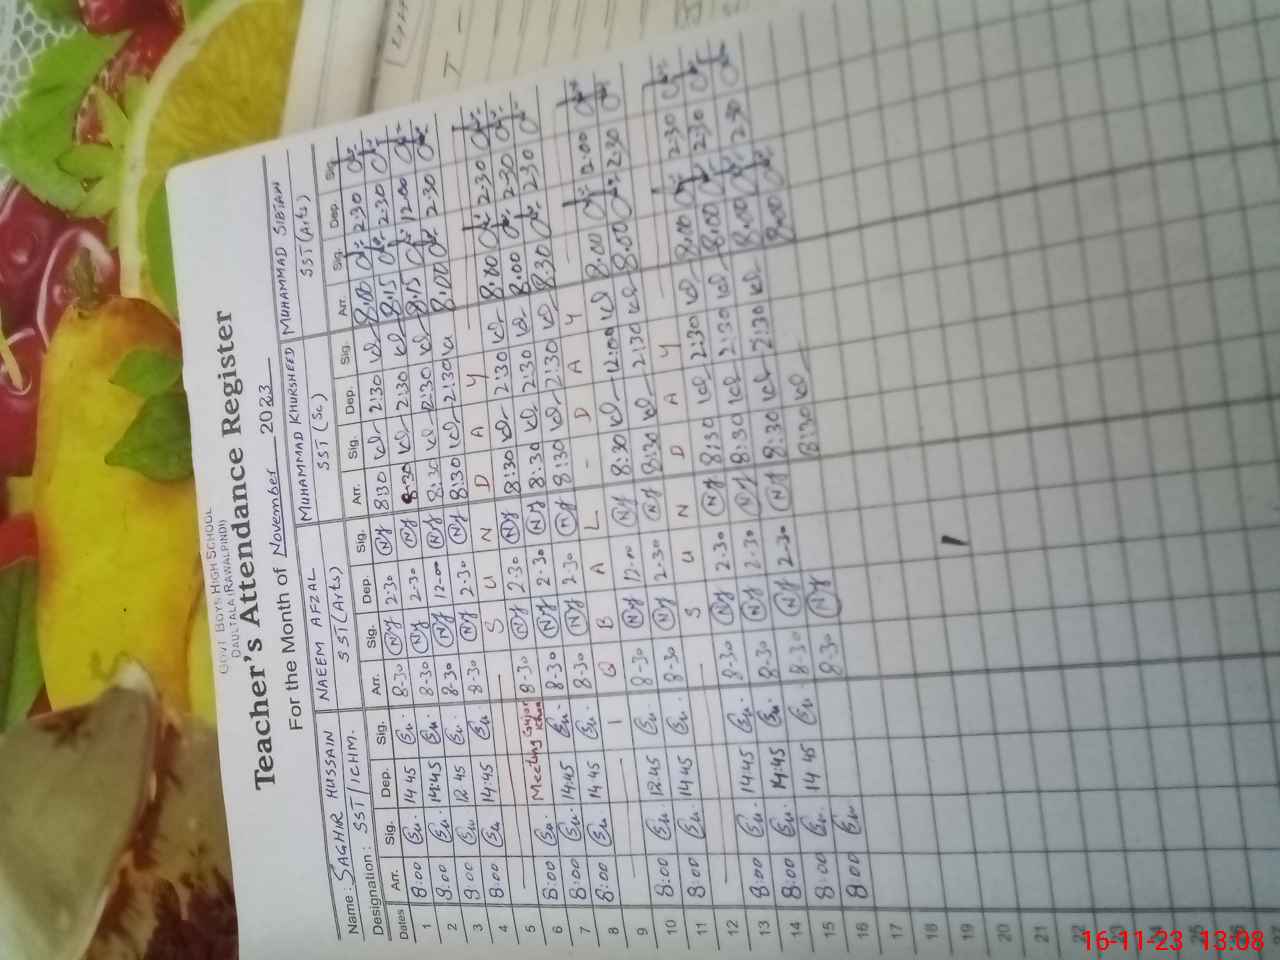 GOVT BOYS HIGH SCHOOL
DAULTALA (RAWALPINDI)
Teacher's Attendance Register
For the Month of November 2023
Name: SAGHIR HUSSAIN NAEEM AFZAL MUHAMMAD KHURSHEED MUHAMMAD SIBTAIN
Designation: SST/ICHM. SST(Arts) SST (Sc) SST (Arts)
Dates Arr. Sig. Dep. Sig. Arr. Sig. Dep. Sig. Arr. Sig. Dep. Sig. Arr. Sig. Dep. Sig.
1 8:00 14 45 8-30 2-30 8:30 2:30 8:00 2:30
2 8:00 14:45 8-30 2-30 8:30 2:30 8:15 2:30
3 8:00 12 45 8-30 12-00 8:30 12:30 8:15 12:00
4 8:00 14:45 8-30 2-30 8:30 2:30 8:00 2:30
5 S U N D A Y
6 8:00 Meeting Gujar Khan 8-30 2-30 8:30 2:30 8:00 2:30
7 8:00 14:45 8-30 2-30 8:30 2:30 8:00 2:30
8 8:00 14 45 8-30 2-30 8:30 2:30 8:30 2:30
9 I Q B A L - D A Y
10 8:00 12:45 8-30 12-00 8:30 12:00 8:00 12:00
11 8:00 14:45 8-30 2-30 8:30 2:30 8:00 2:30
12 S U N D A Y
13 8:00 14:45 8-30 2-30 8:30 2:30 8:00 2:30
14 8:00 14:45 8-30 2-30 8:30 2:30 8:00 2:30
15 8:00 14 45 8-30 2-30 8:30 2:30 8:00 2:30
16 8:00 8-30 8:30 8:00
17
18
19
20
21
22
23
24
25
26
16-11-23 13:08